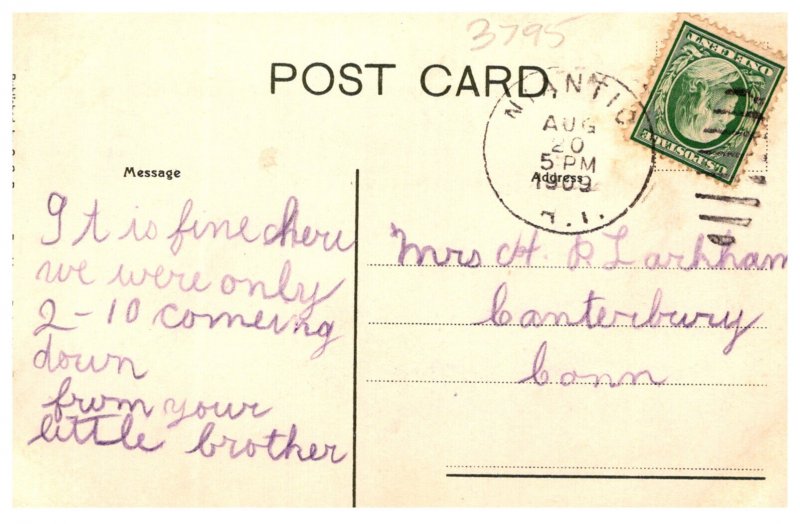 3795
POST CARD.
NIANTIC
AUG
20
5 PM
1909
R.I.
ONE CENT
U.S. POSTAGE
Message
Address
It is fine here
we were only
2-10 comeing
down
from your
little brother
Mrs H. P Larkham
Canterbury
Conn